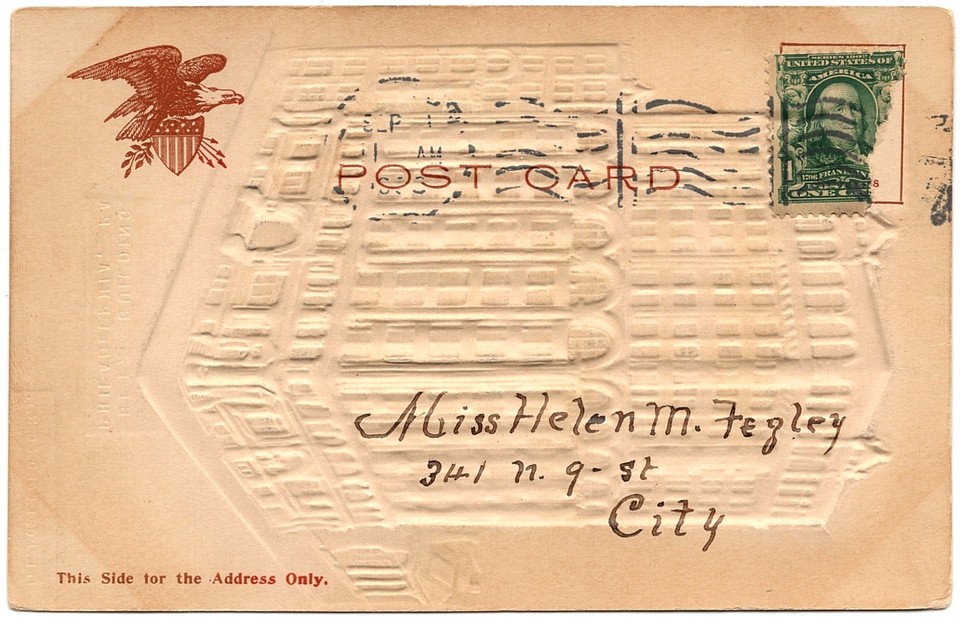 POST CARD
SERIES 1902
UNITED STATES OF
AMERICA
1706 FRANKLIN
ONE
AM
Miss Helen M. Fegley
341 n. 9 - st
City
This Side for the Address Only.